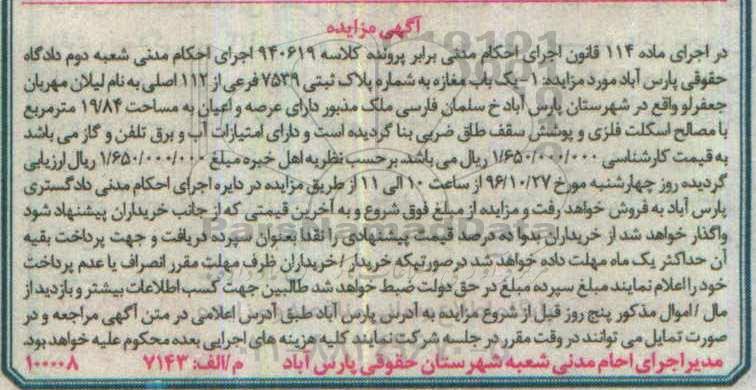 آگهی مزایده
در اجرای ماده ۱۱۴ قانون اجرای احکام مدنی برابر پرونده کلاسه ۹۴۰۶۱۹ اجرای احکام مدنی شعبه دوم دادگاه
حقوقی پارس آباد مورد مزایده: ۱-یک باب مغازه به شماره پلاک ثبتی ۷۵۳۹ فرعی از ۱۱۲ اصلی به نام لیلان مهربان
جعفرلو واقع در شهرستان پارس آباد خ سلمان فارسی ملک مذبور دارای عرصه و اعیان به مساحت ۱۹/۸۴ مترمربع
با مصالح اسکلت فلزی و پوشش سقف طلق ضربی بنا گردیده است و دارای امتیازات آب و برق تلفن و گاز می باشد
به قیمت کارشناسی ۱/۶۵۰/۰۰۰/۰۰۰ ریال می باشد. برحسب نظریه اهل خبره مبلغ ۱/۶۵۰/۰۰۰/۰۰۰ ریال ارزیابی
گردیده روز چهارشنبه مورخ ۹۶/۱۰/۲۷ از ساعت ۱۰ الی ۱۱ از طریق مزایده در دایره اجرای احکام مدنی دادگستری
پارس آباد به فروش خواهد رفت و مزایده از مبلغ فوق شروع و به آخرین قیمتی که از جانب خریداران پیشنهاد شود
واگذار خواهد شد از خریداران بدوا ده درصد قیمت پیشنهادی را نقدا بعنوان سپرده دریافت و جهت پرداخت بقیه
آن حداکثر یک ماه مهلت داده خواهد شد در صورتیکه خریدار/خریداران ظرف مهلت مقرر انصراف یا عدم پرداخت
خود را اعلام نمایند مبلغ سپرده مبلغ در حق دولت ضبط خواهد شد طالبین جهت کسب اطلاعات بیشتر و بازدید از
مال / اموال مذکور پنج روز قبل از شروع مزایده به آدرس پارس آباد طبق آدرس اعلامی در متن آگهی مراجعه و در
صورت تمایل می توانند در وقت مقرر در جلسه شرکت نمایند کلیه هزینه های اجرایی بعده محکوم علیه خواهد بود.
مدیر اجرای احام مدنی شعبه شهرستان حقوقی پارس آباد م/الف: ۷۱۴۳ ۱۰۰۰۰۸
ParsNamadData